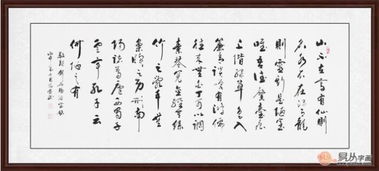 山不在高有仙则
名水不在深有龙
则灵斯是陋室
唯吾德馨苔痕
上阶绿草色入
帘青谈笑有鸿儒
往来无白丁可以调
素琴阅金经无丝
竹之乱耳无
案牍之劳形南
阳诸葛庐西蜀子
云亭孔子云
何陋之有
易从字画